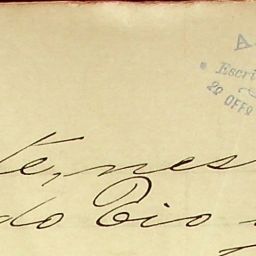 A
Escri
2º OFFº
te, nes
do Rio